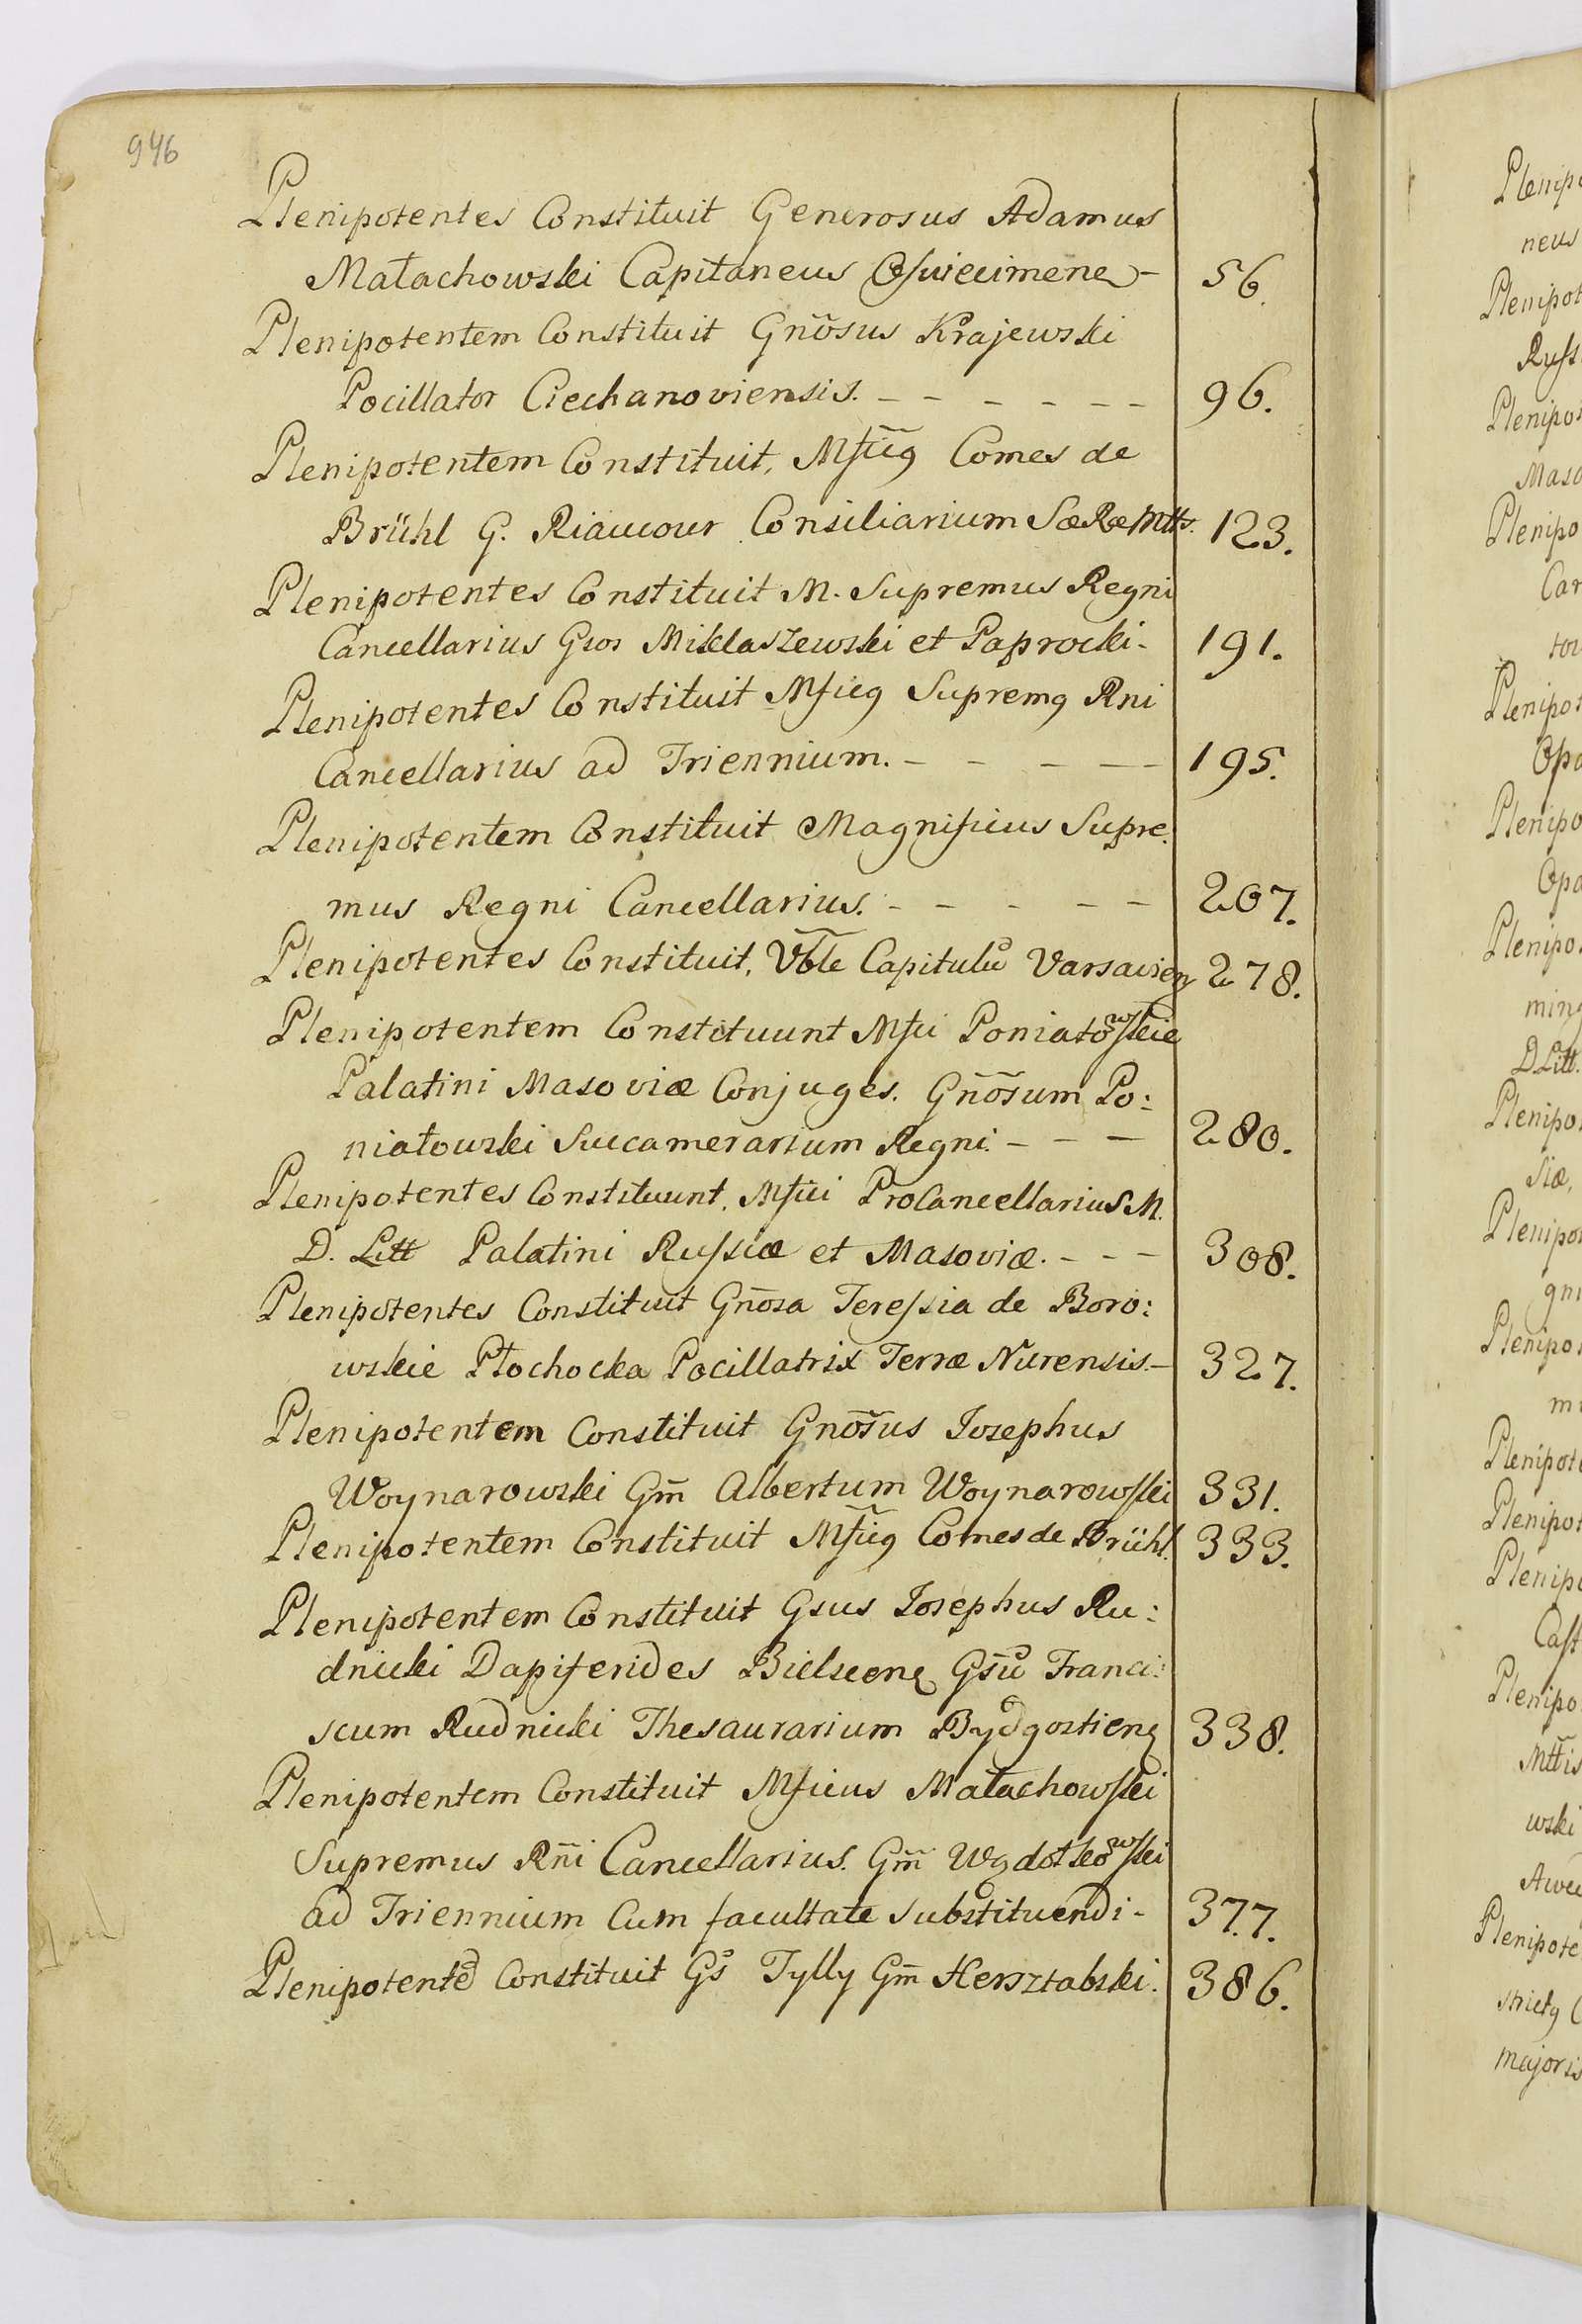 946
Plenipotentes Constituit Generosus Adamus
Małachowski Capitaneus Osvieciмene - 56.
Plenipotentem Constituit Gnõsus Krajewski
Pocillator Ciechanoviensis. - - - - - - 96.
Plenipotentem Constituit, Mficg Comes de
Brühl G. Riaucour Consiliarium SæRæMtts. 123.
Plenipotentes Constituit M. Supremus Regni
Cancellarius Gsos Miklaszewski et Paprocki. 191.
Plenipotentes Constituit Mficg Supremg Rni
Cancellarius ad Triennium. - - - - 195.
Plenipotentem Constituit Magnificus Supre.
mus Regni Cancellarius. - - - - - 207.
Plenipotentes Constituit, Vble Capitulũ Varsavien 278.
Plenipotentem Constituunt Mfci Poniatowskie
Palatini Masoviæ Conjuges. Gnõsum Po:
niatowski Succamerarium Regni. - - - 280.
Plenipotentes Constituunt. Mfici ProCancellarius M.
D. Litt Palatini Russiæ et Masoviæ. - - - 308.
Plenipotentes Constituit Gnõsa Teressia de Boro:
wskie Płochocka Pocillatrix Terræ Nurensis. - 327.
Plenipotentem Constituit Gnõsus Josephus
Woynarowski Gm̃ Albertum Woynarowski 331.
Plenipotentem Constituit Mficg Comes de Brühl. 333.
Plenipotentem Constituit Gsus Josephus Ru:
dnicki Dapiferides Bielscens Gsũ Franci:
scum Rudnicki Thesaurarium Bydgostiens 338.
Plenipotentem Constituit Mficus Małachowski
Supremus Rñi Cancellarius. Gm̃
ad Triennium Cum facultate substituendi - 377.
Plenipotentẽ Constituit Gs Tylly Gm̃ Hersztabski. 386.